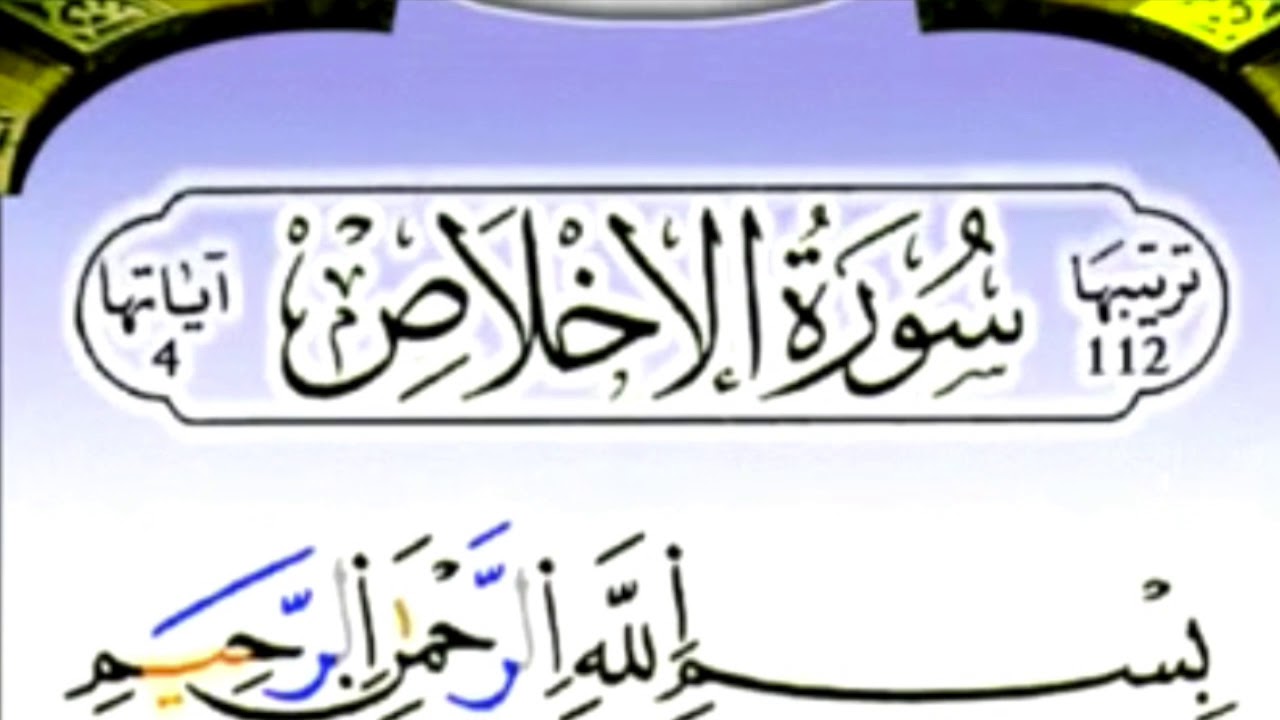 ترتيبها سُورَةُ الإِخْلَاصِ آيَاتها
112 4
بِسْمِ اللَّهِ الرَّحْمَٰنِ الرَّحِيمِ